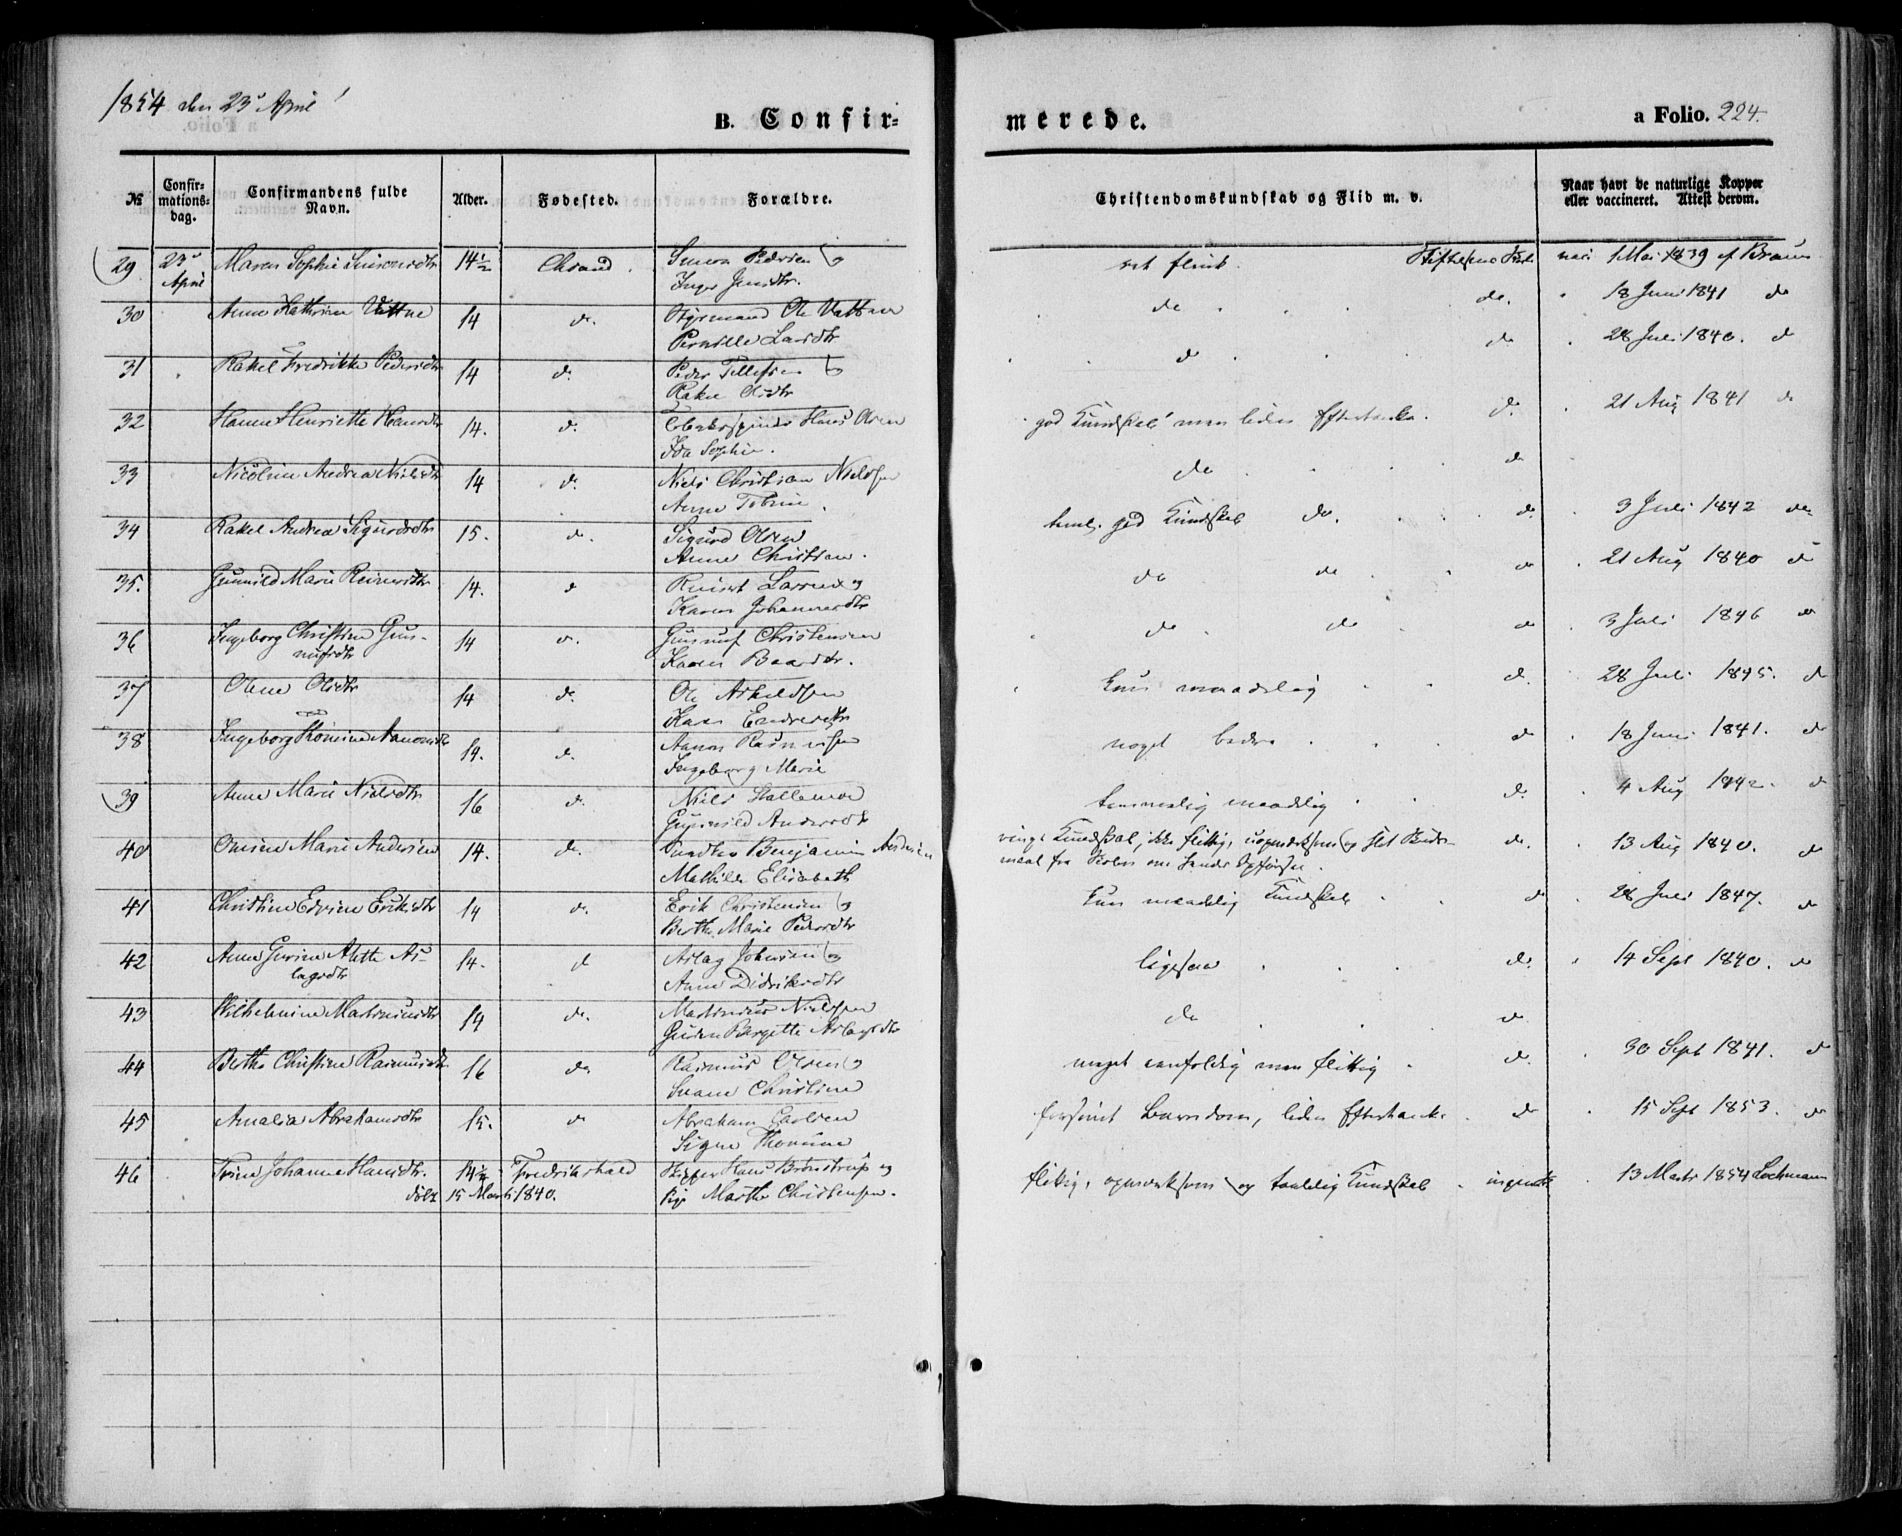 1854 den 23d April
B. Confir-
merede.
a Folio. 224.
No
Confir-
mations-
dag.
Confirmandens fulde
Navn.
Alder.
Fødested.
Forældre.
Christendomskundskab og Flid m. v.
Naar havt de naturlige Kopper
eller vaccineret. Attest derom.
29 23d Maren Sophie Simonsdtr 14½ Chrsand Simon Pedersen og ret flink. vacc 1 Mai 1839 af Bruun
April Inger Jensdtr.
30 Anne Kathrine Vattne 14 do. Styrmand Ole Vattne do do. 18 Juni 1841 do
Pernille Larsdtr
31 Rakel Fredrikke Pedersdtr 14 do. Peder Tellefsen og do do 28 Juli 1840. do
Rakel Olsdtr
32 Hanne Henriette Hansdtr 14. do. Hans Olsen god Kundskab men liden Eftertanke. do. 21 Aug 1841 do
Ida Sophie.
33 Nicoline Andrea Nielsdtr 14 do. Niels Christian Nielsen do do
Anne Tobine.
34 Rakel Andrea Sigurdsdtr 15. do. Sigurd Olsen teml. god Kundskab do. do. 3 Juli 1842 do
Anne Christine.
35. Gunnild Marie Reinertsdtr 14. do Reinert Larsen og do do do 21 Aug 1840 do
Karen Johannesdtr
36 Ingeborg Christine Gun- 14 do. Gunnuf Christensen do do do 3 Juli 1846 do
nufsdtr Karen Baardsdtr.
37 Olene Olsdtr 14 do. Ole Askeldsen kun maadelig do. 28 Juli 1845. do
Karen Endresdtr
38 Ingeborg Aanonsdtr 14. do. Aanon Rasmussen noget bedre do 18 Juni 1841. do
Ingeborg Marie
39 Anne Marie Nielsdtr 16 do. Niels temmelig maadelig do. 4 Aug 1842. do
Gunnild Andersdtr
40 Marie Andersen 14. do. Benjamin Andersen ringe Kundskab, ikke flittig, uopmærksom og slet do. 13 Aug 1840. do
Mathilde Elisabeth fra Skolen om hendes Opførsel.
41 Christine Edvine Eriksdtr 14 do. Erik Christensen og kun maadelig Kundskab do 28 Juli 1847. do
Berthe Marie Pedersdtr
42 Anne Gurine Alette As- 14. do Aslag Johnsen og ligesaa do. 14 Sept 1840. do
lagsdtr Anne Didriksdtr
43 Wilhelmine Martiniusdtr 14 do. Martinius Nielsen do do
Bergette Aslagsdtr
44 Berthe Christine Rasmusdtr 16 do Rasmus Olsen og noget eenfoldig men flittig do. 30 Sept 1841. do
Christine
45 Amalia Abrahamsdtr 15. do Abraham Carlsen forsømt Barndom, liden Eftertanke do 15 Sept 1853. do
Signe Thomine
46 Trine Johanne Hansdtr. 14½ Fredrikshald Skipper Hans Brønstrup og flittig, opmærksom og taalelig Kundskab 13 Marts 1854 Lochmann
født 15 Marts 1840. Marthe Christensen.